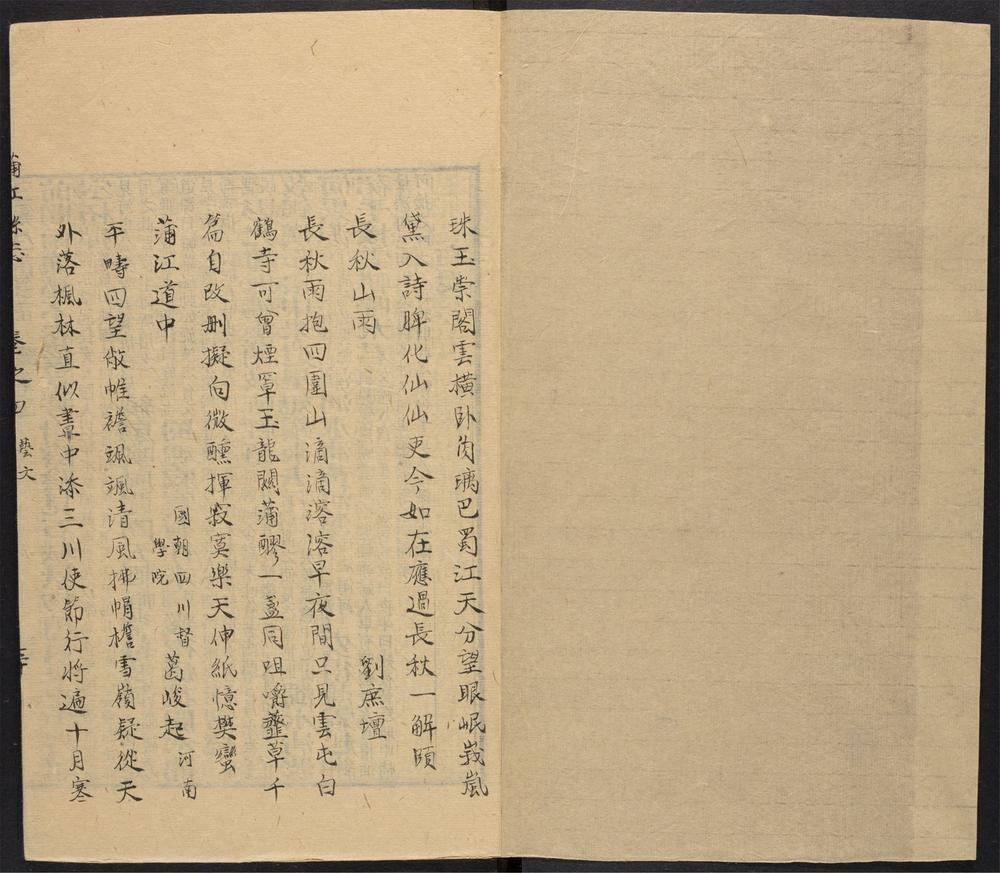 珠玉崇閣雲橫卧肉璃巴蜀江天分望眼岷峩嵐
黛入詩脾化仙仙吏今如在應過長秋一解頤
長秋山雨 劉庶壇
長秋雨抱四圍山滴滴溶溶早夜間只見雲屯白
鶴寺可曾煙罩玉龍關蒲醪一盞同咀嚼虀草千
篇自改刪擬向微醺揮寂寞樂天伸紙憶樊蠻
蒲江道中 國朝四川督學院 葛峻起 河南
平疇四望敞帷襜颯颯清風拂帽檐雪嶺疑從天
外落楓林直似畫中添三川使節行將遍十月寒
蒲江縣志 卷之四 藝文